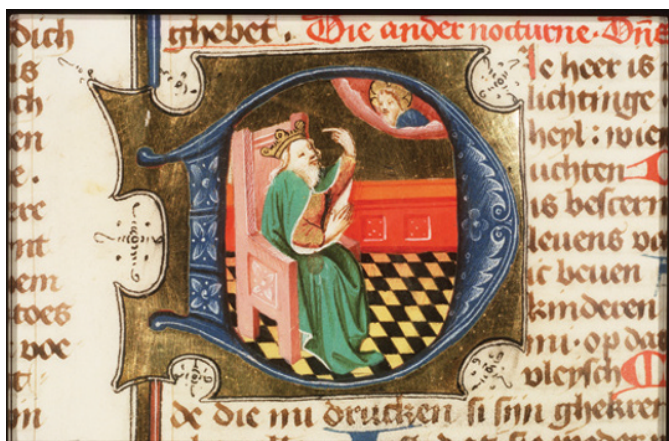 dich
is
ch
en
e .
ere
nt
em
toes
voe
ghebet . Die ander nocturne . Dn̄s
Ie heer is
lichtinge
heyl : wien
uchten
is bescerm
leuens va
ic beuen
kinderen
mi . op dat
vleysch
de die mi drucken si sijn ghekren